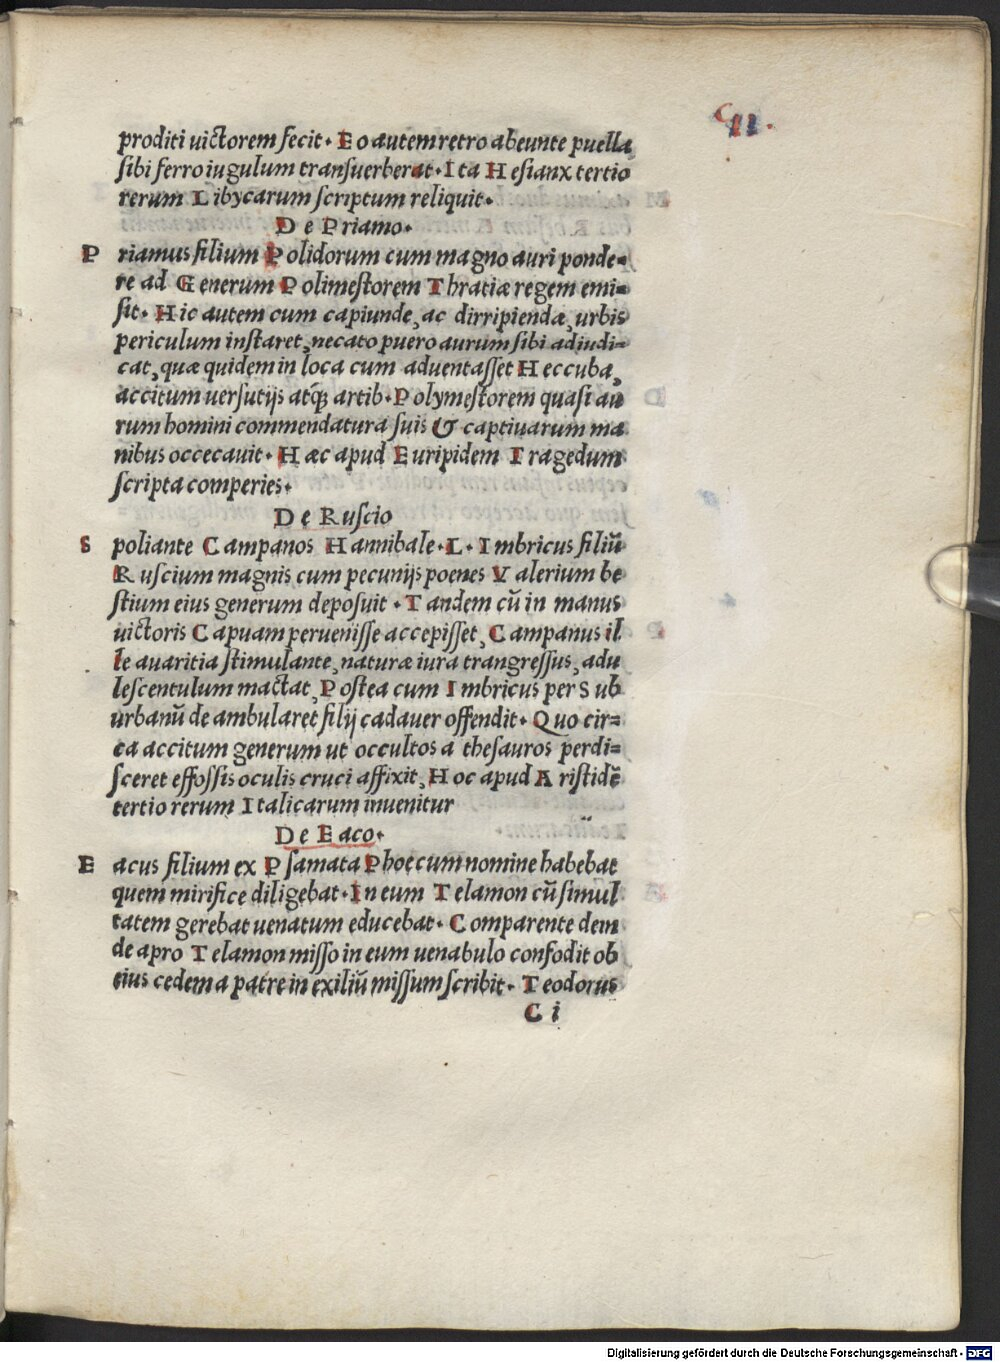 C11.
proditi uictorem fecit. Eo autem retro abeunte puella
sibi ferro iugulum transuerberat. Ita Hesianx tertio
rerum Libycarum scriptum reliquit.
De Priamo.
Priamus filium Polidorum cum magno auri ponde=
re ad Generum Polimestorem Thratiæ regem emi=
sit. Hic autem cum capiunde, ac dirripiendæ, urbis
periculum instaret, necato puero aurum sibi adiudi=
cat, quæ quidem in loca cum aduentasset Heccuba,
accitum uersutijs atq̃ artib. Polymestorem quasi au
rum homini commendatura suis & captiuarum ma
nibus occecauit. Hæc apud Euripidem Tragedum
scripta comperies.
De Ruscio
Spoliante Campanos Hannibale. L. Imbricus filiũ
Ruscium magnis cum pecunijs poenes Valerium be
stium eius generum deposuit. Tandem cũ in manus
uictoris Capuam peruenisse accepisset, Campanus il
le auaritia stimulante, naturæ iura trangressus, adu
lescentulum mactat, Postea cum Imbricus per Sub
urbanũ de ambularet filij cadauer offendit. Quo cir=
ca accitum generum ut occultos a thesauros perdi=
sceret effossis oculis cruci affixit, Hoc apud Aristidẽ
tertio rerum Italicarum inuenitur
De Eaco.
Eacus filium ex Psamata Phoecum nomine habebat
quem mirifice diligebat. In eum Telamon cũ simul
tatem gerebat uenatum educebat. Comparente dem
de apro Telamon misso in eum uenabulo confodit ob
eius cedem a patre in exiliũ missum scribit. Teodorus
C i
Digitalisierung gefördert durch die Deutsche Forschungsgemeinschaft - DFG